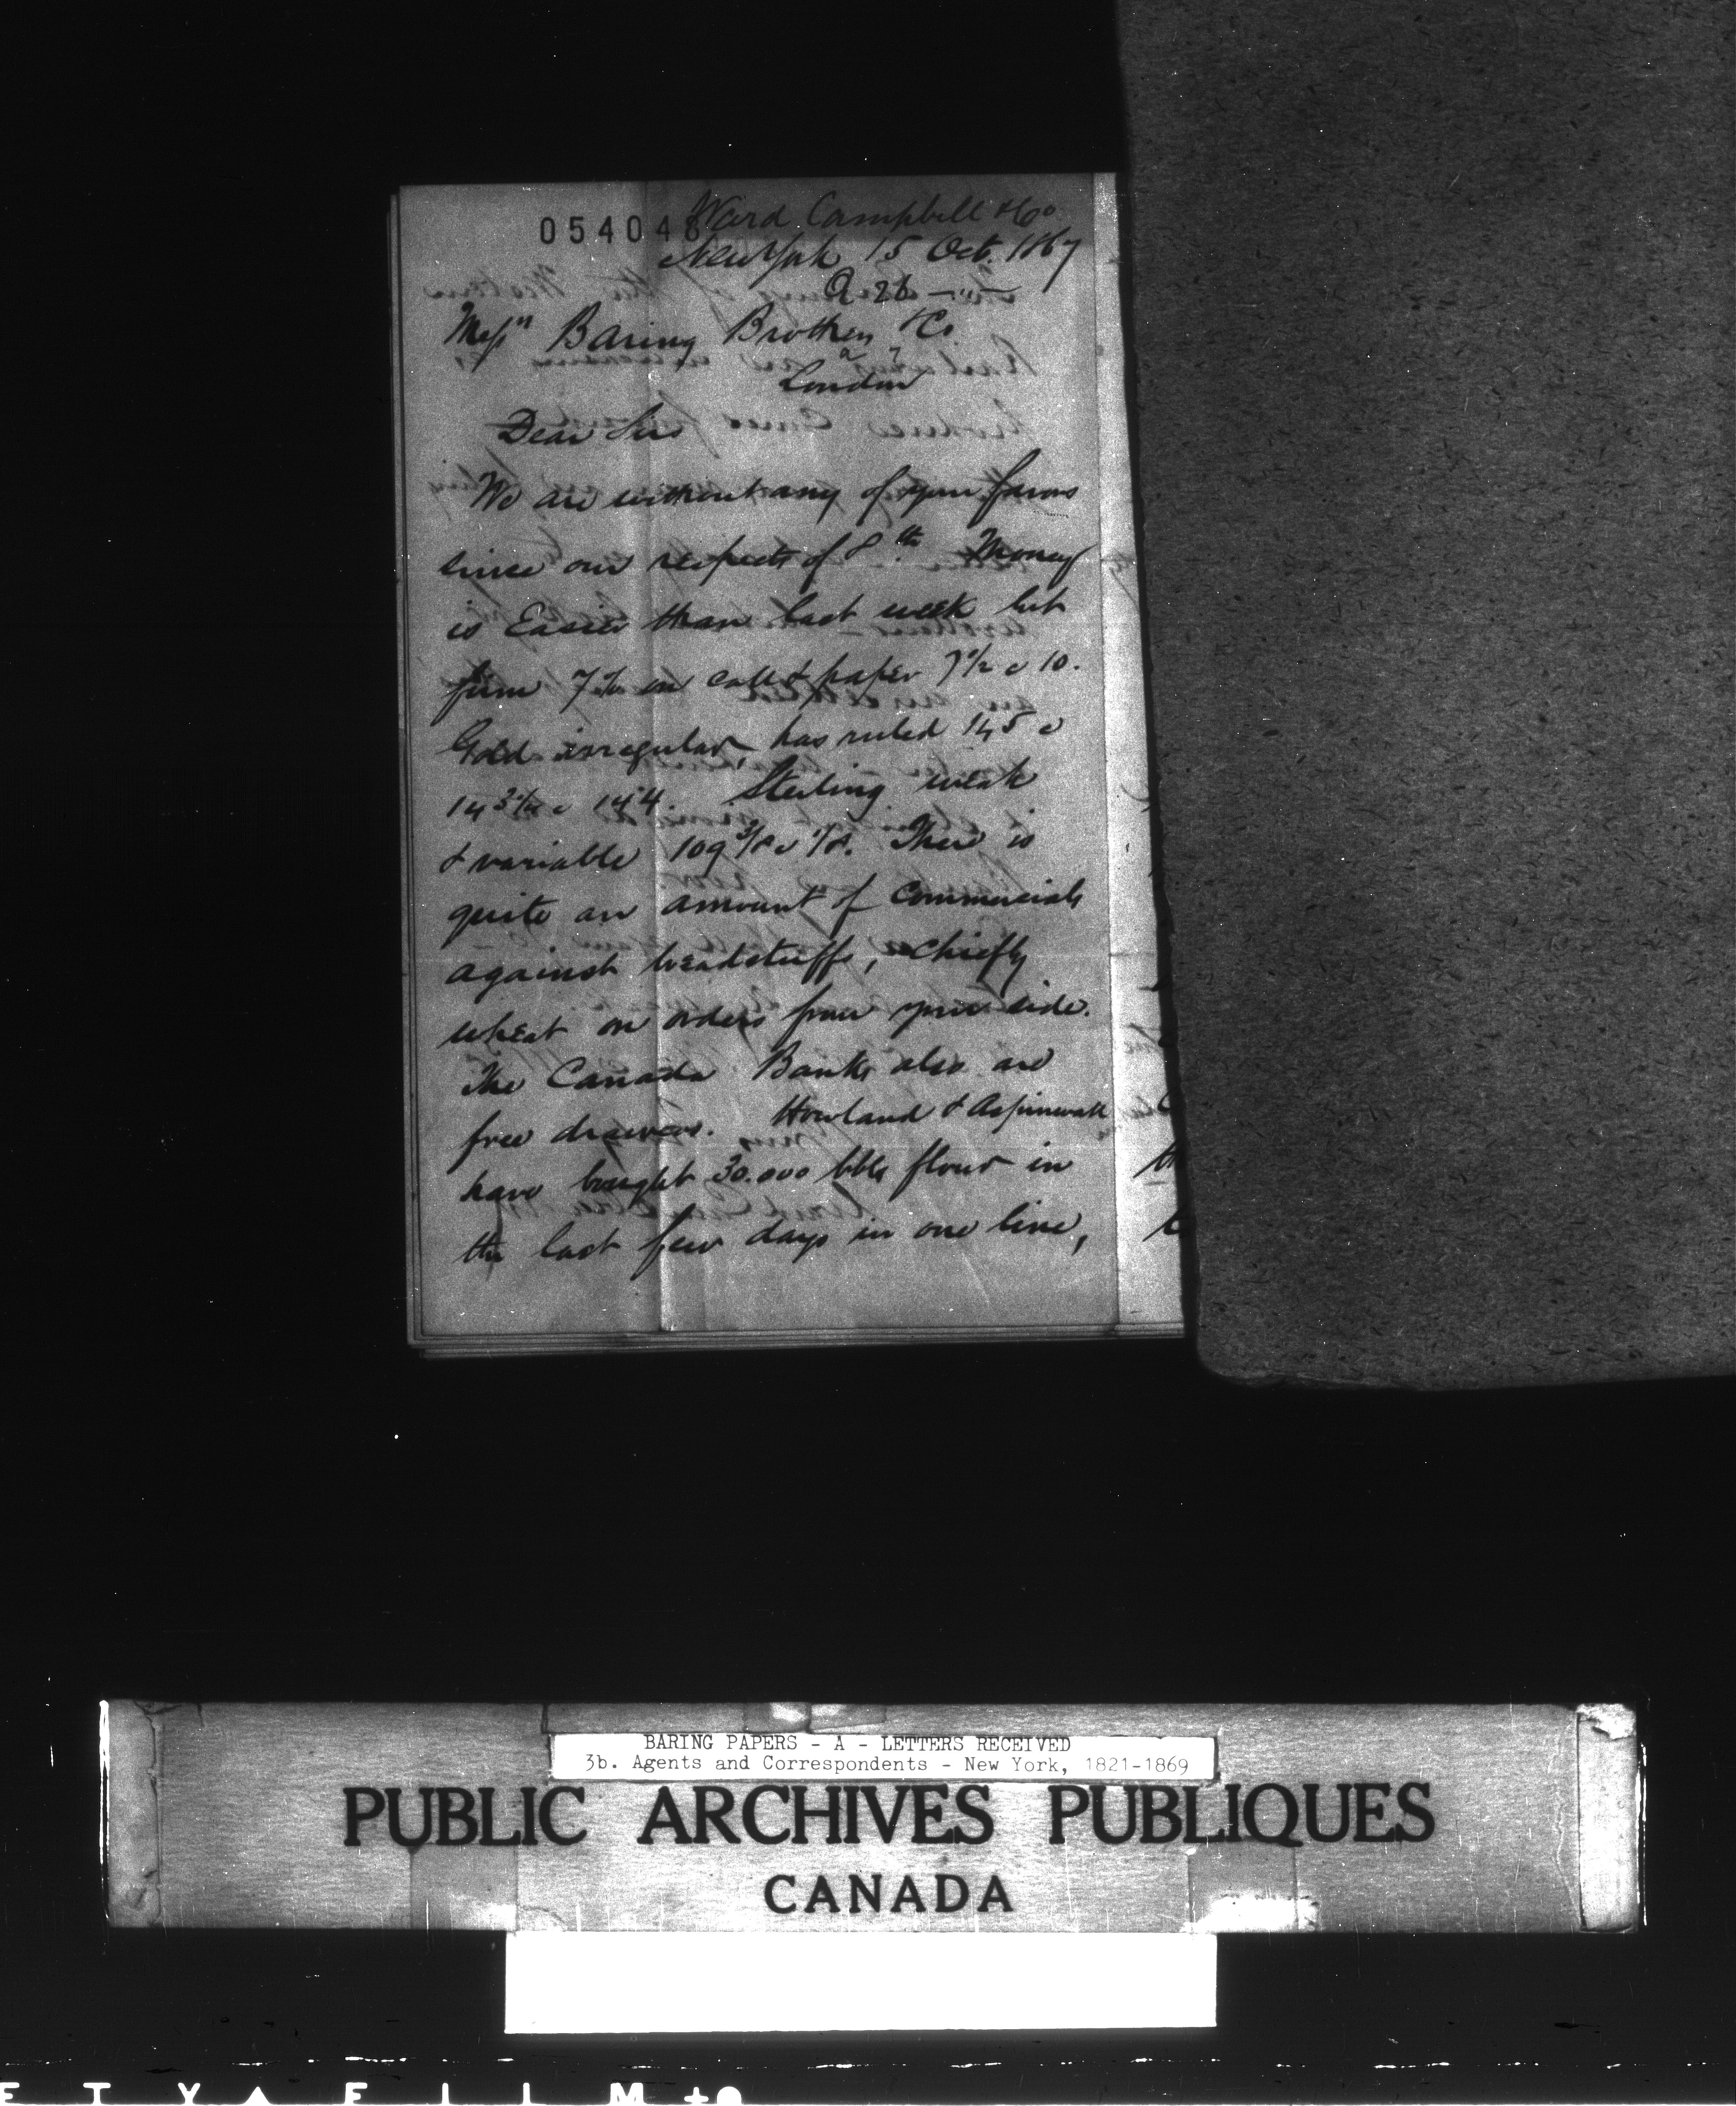 054048
Ward Campbell & Co
New York 15 Oct. 1867
R 26 —"—
Messrs Baring Brothers & Co.
London
Dear Sirs
We are without any of your favors
since our respects of 8th. Money
is Easier than last week but
firm 7% on call & paper 7 1/2 a 10.
Gold irregular, has ruled 145 a
143 1/4 a 144. Sterling weak
& variable 109 3/8 a 1/8. There is
quite an amount of Commercials
against breadstuffs, chiefly
wheat on orders from your side.
The Canada Banks also are
free drawers. Howland & Aspinwall
have bought 30.000 bbls flour in
the last few days in one line,
BARING PAPERS - A - LETTERS RECEIVED
3b. Agents and Correspondents - New York, 1821-1869
PUBLIC ARCHIVES PUBLIQUES
CANADA
E T Y A F I L M